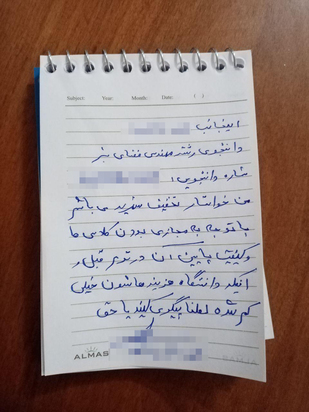 Subject: Year: Month: Date: ( )
اینجانب
دانشجوی رشته مهندسی فضای سبز
شماره دانشجویی:
من خواستار تخفیف شهریه می باشم
باتوجه به مجازی بودن کلاس ها
و کیفیت پایین آن در ترم قبل و
اینکه دانشگاه هزینه هاشون خیلی
کم شده لطفا پیگیری کنید با حق
ALMAS